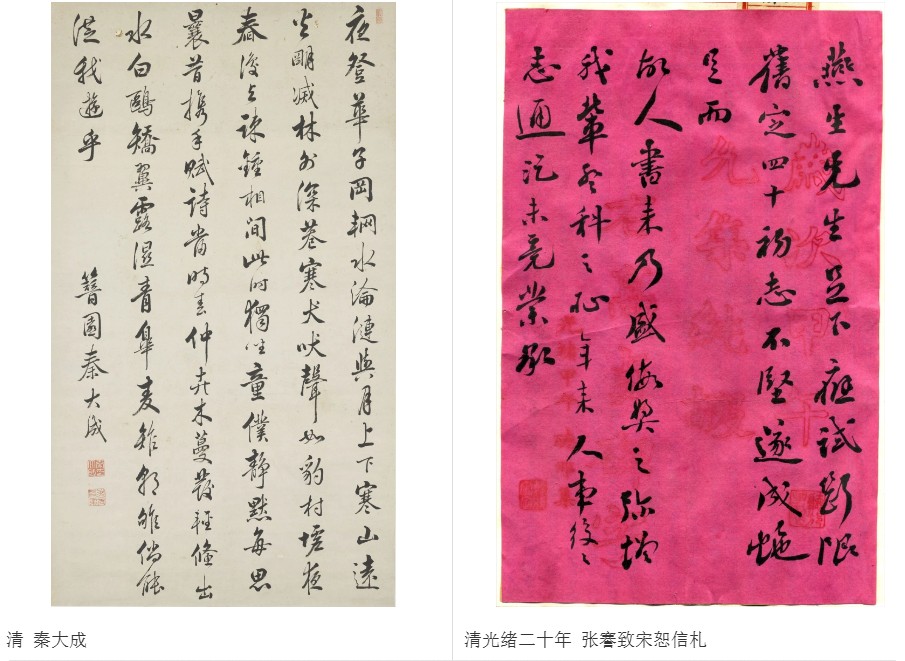 夜登華子岡輞水淪漣與月上下寒山遠
火明滅林外深巷寒犬吠聲如豹村墟夜
舂復與疎鍾相間此時獨坐童僕靜默每思
曩昔携手賦詩當時春仲卉木蔓發輕鯈出
水白鷗矯翼露濕青皐麦雉朝雊倘能
從我遊乎
簪園秦大成
清 秦大成
燕生先生足下應試斷限
舊定四十初志不堅遂成蛇
足而
故人書来乃盛獎之弥增
我輩登科之恥年来人事役〻
志通未竟業承
清光绪二十年 张謇致宋恕信札